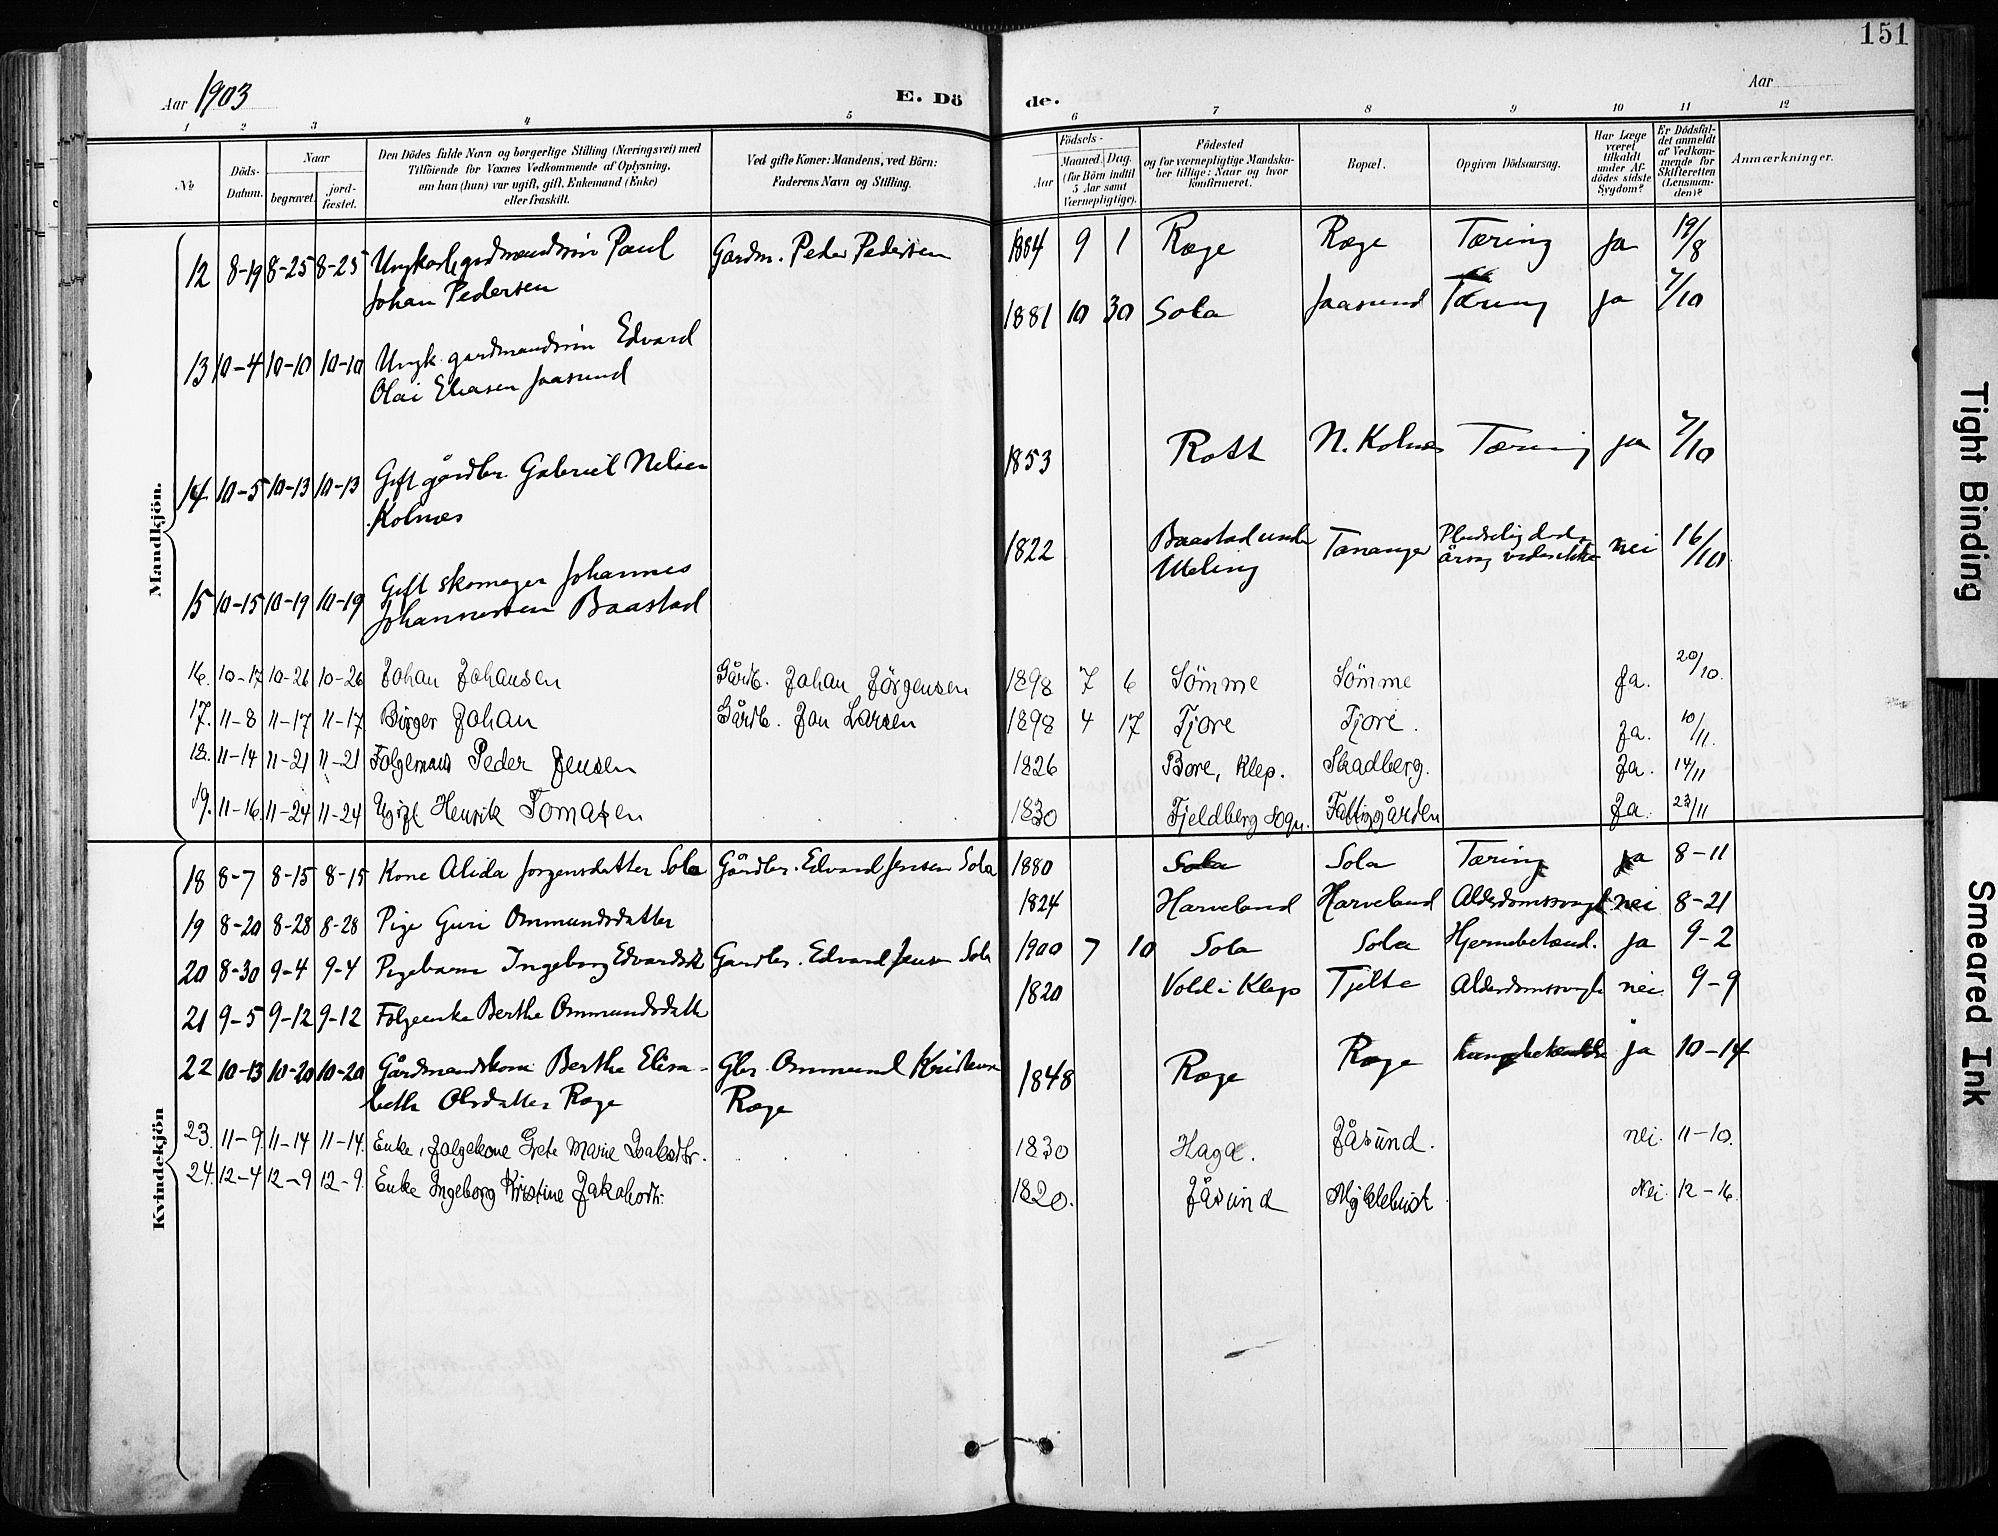 151
Aar 1903
E. Dö
de.
Aar
1 2 3 4 5 6 7 8 9 10 11 12
№
Döds-Datum.
Naar
begravet.
jord-fæstet.
Den Dödes fulde Navn og borgerlige Stilling (Næringsvei) med
Tilföiende for Voxnes Vedkommende af Oplysning,
om han (hun) var ugift, gift, Enkemand (Enke)
eller fraskilt.
Ved gifte Koner: Mandens, ved Börn:
Faderens Navn og Stilling.
Födsels-
Aar
Maaned. Dag.
(for Börn indtil
5 Aar samt
Værnepligtige).
Födested
og for værnepligtige Mandska-
ber tillige: Naar og hvor
konfirmeret.
Bopæl.
Opgiven Dödsaarsag.
Har Læge
været
tilkaldt
under Af-
dödes sidste
Sygdom?
Er Dödsfal-
det anmeldt
af Vedkom-
mende for
Skifteretten
(Lensman-
den)?
Anmærkninger.
Mandkjön.
12 8-19 8-25 8-25 Ungkarl gardmandssön Paul Gardm. Peder Pedersen 1884 9 1 Ræge Ræge Tæring Ja 19/8
Johan Pedersen
13 10-4 10-10 10-10 Ungk. gardmandssön Edvard 1881 10 30 Sola Jaasund Tæring ja 7/10
Olai Eliasen Jaasund
14 10-5 10-13 10-13 Gift gårdbr. Gabriel Nilsen 1853 Rott N. Kolnes Tæring ja 7/10
Kolnes
15 10-15 10-19 10-19 Gift skomager Johannes 1822 Baastad under Tananger Pludselig død, nei 16/10
Johannessen Baastad Meling årsag vides ikke
16. 10-17 10-26 10-26 Johan Johansen Gårdb. Johan Jörgensen 1898 7 6 Sömme Sömme Ja. 20/10.
17. 11-8 11-17 11-17 Birger Johan Gårdb. Jon Larsen 1898 4 17 Tjore Tjore. Ja. 10/11.
18. 11-14 11-21 11-21 Folgemand Peder Jensen 1826 Bore, Klep. Skadberg. Ja. 14/11
19. 11-16. 11-24 11-24 Ugift Henrik Tomasen 1830 Fjeldberg sogn. Fattiggården Ja. 23/11
Kvindekjön
18 8-7 8-15 8-15 Kone Alida Jorgensdatter Sola Gårdbr. Edvard Jensen Sola 1880 Sola Sola Tæring ja 8-11
19 8-20 8-28 8-28 Pige Guri Ommundsdatter 1824 Harveland Harveland Alderdomssvagh. nei 8-21
20 8-30 9-4 9-4 Pigebarn Ingeborg Edvardsd. Gardbr. Edvard Jensen Sola 1900 7 10 Sola Sola Hjernebetænd. ja 9-2
21 9-5 9-12 9-12 Folgeenke Berthe Ommundsdatt 1820 Vold i Klep Tjelte Alderdomssvagh nei 9-9
22 10-13 10-20 10-20 Gårdmandskone Berthe Elisa- Gbr. Ommund Kristensen 1848 Ræge Ræge Lungebetændelse ja 10-14
beth Olsdatter Ræge Ræge
23. 11-9. 11-14 11-14. Enke, folgekone Grete Marie Isaksdtr. 1830 Haga. Jåsund. nei. 11-10.
24. 12-4 12-9 12-9. Enke Ingeborg Kristine Jakobsdtr. 1820. Jåsund Myklebust Nei. 12-16.
Tight Binding
Smeared Ink